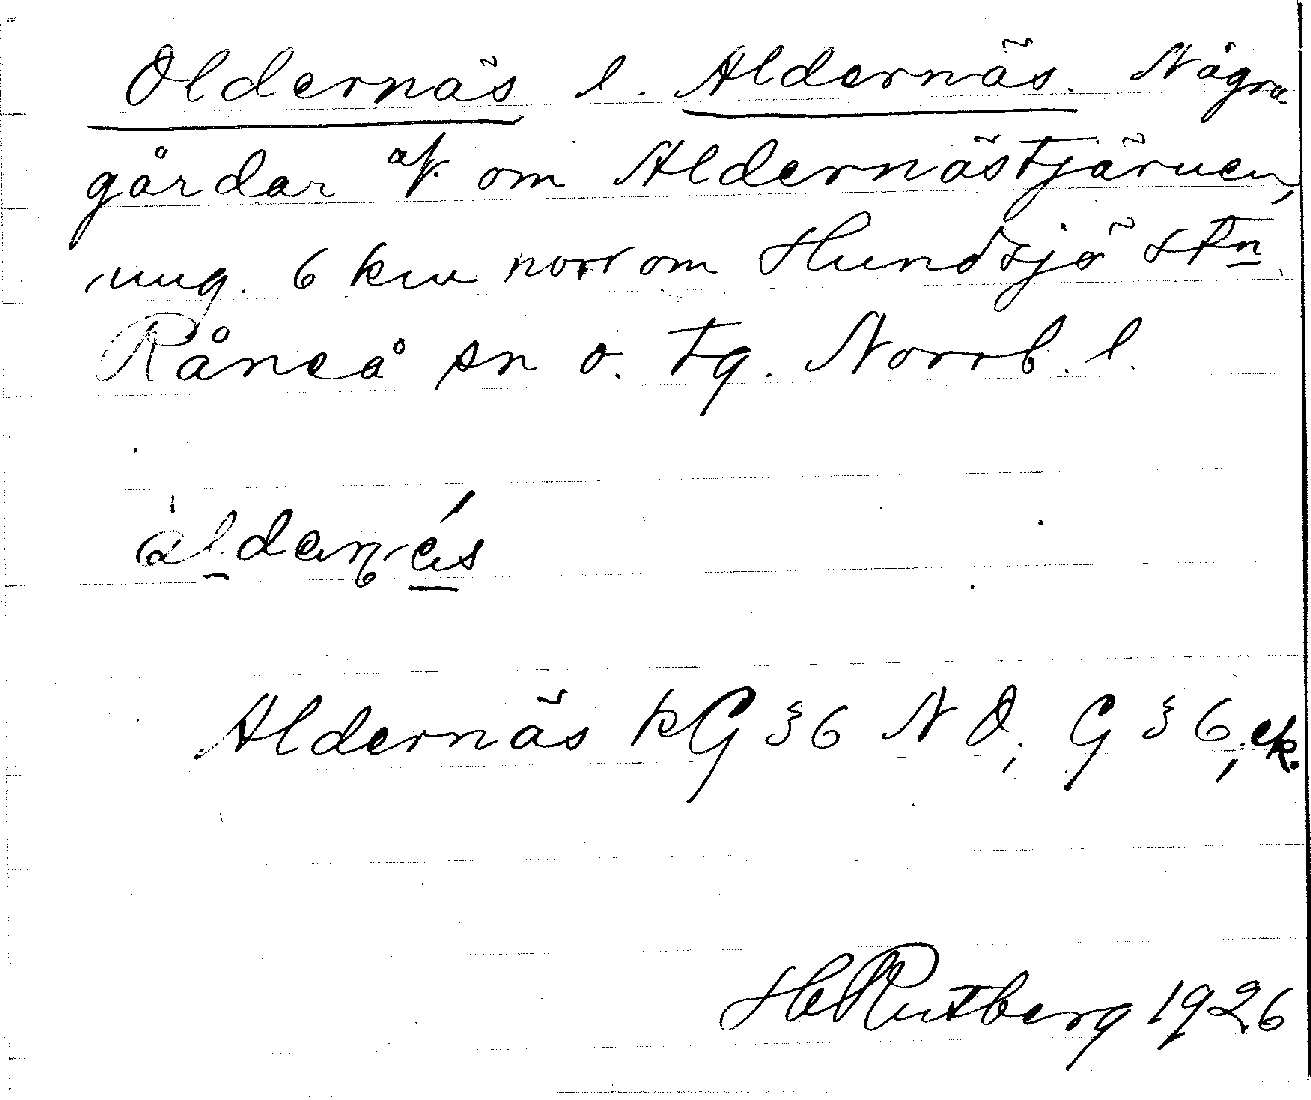 Oldernäs l. Aldernäs. Några
gårdar å V. om Aldernästjärnen,
ung. 6 km norr om Hundsjö stn
Råneå sn o. tg. Norrb. l.
Aldernäs kG §6 NO, G §6, ek.
H Rutberg 1926